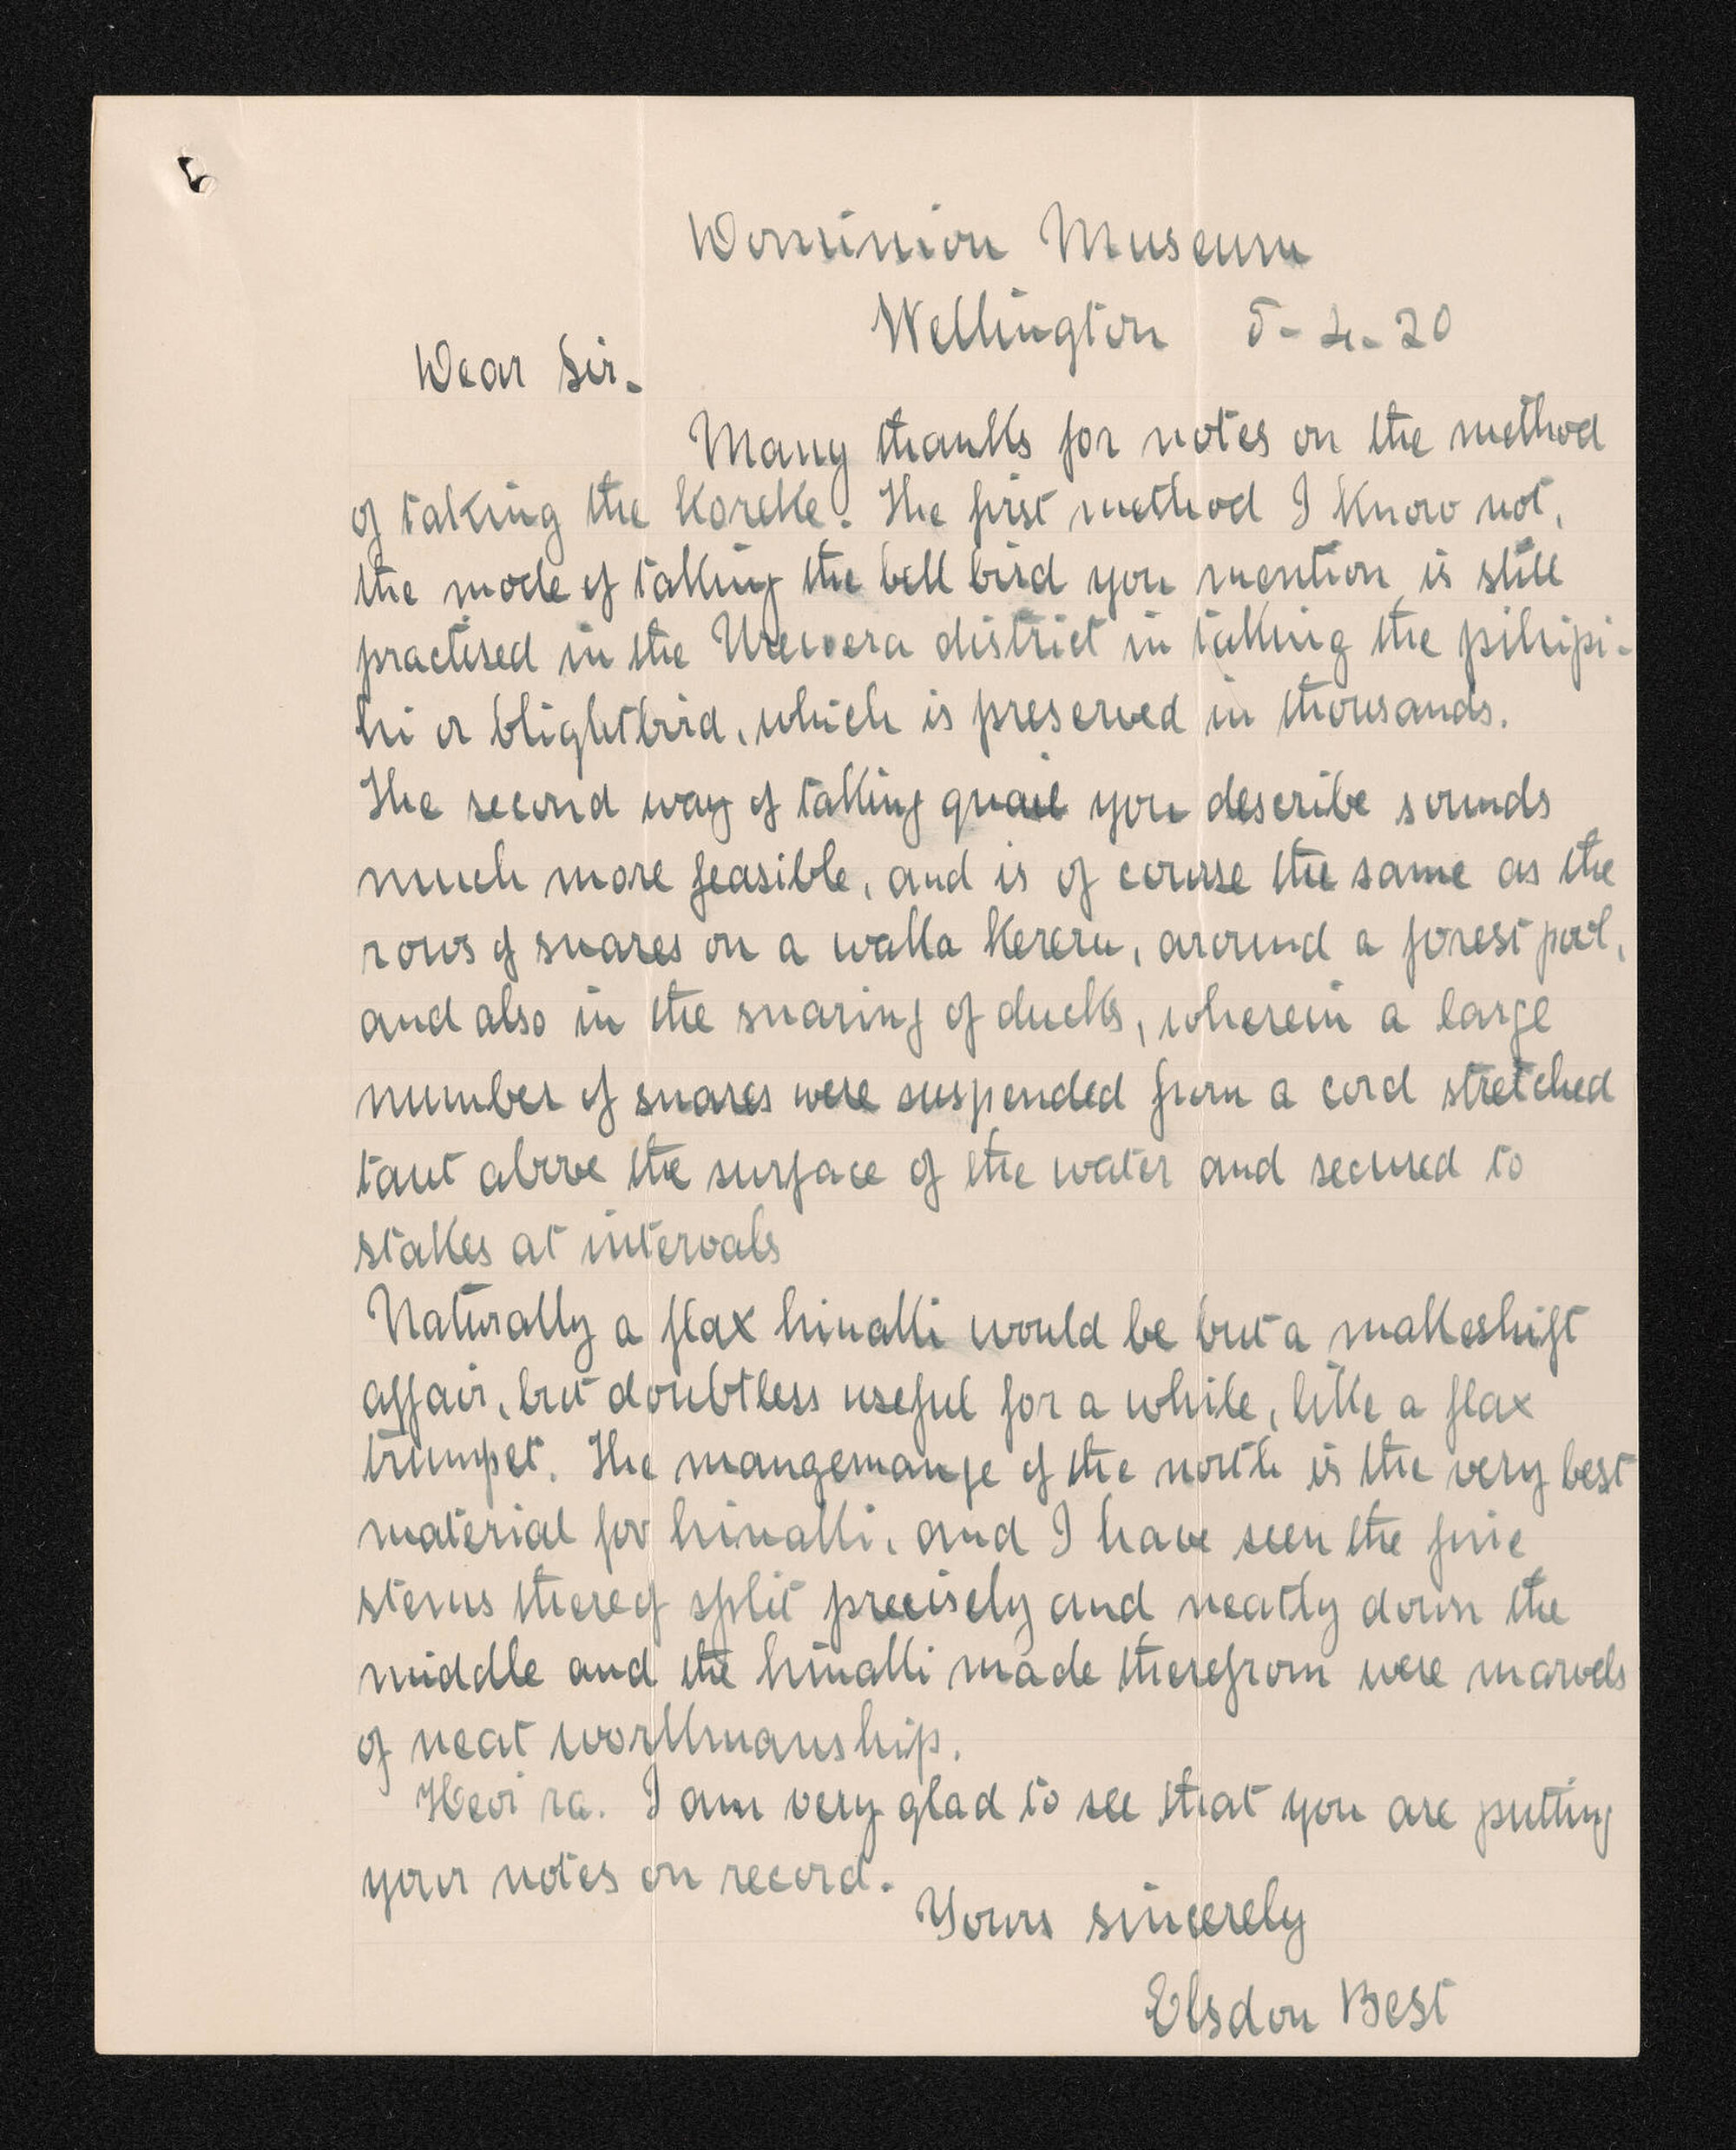 Dominion Museum
Wellington 5-4-20
Dear Sir.
Many thanks for notes on the method
of taking the koreke. The first method I know not,
the mode of taking the bell bird you mention is still
practised in the Urewera district in taking the pihipi-
hi or blightbird, which is preserved in thousands.
The second way of taking quail you describe sounds
much more feasible, and is of course the same as the
rows of snares on a waka kereru, around a forest pool,
and also in the snaring of ducks, wherein a large
number of snares were suspended from a cord stretched
taut above the surface of the water and secured to
stakes at intervals
Naturally a flax hinaki would be but a makeshift
affair, but doubtless useful for a while, like a flax
trumpet. The mangemange of the north is the very best
material for hinaki, and I have seen the fine
stems thereof split precisely and neatly down the
middle and the hinaki made therefrom were marvels
of neat workmanship.
Heoi ra. I am very glad to see that you are putting
your notes on record.
Yours sincerely
Elsdon Best